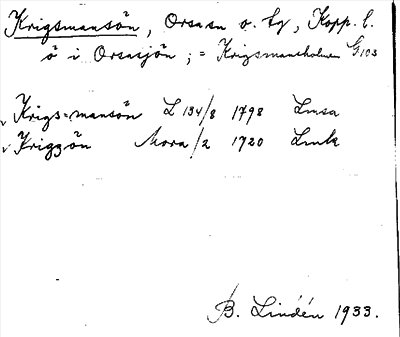 Krigsmansön, Orsasn o. tg, Kopp. l.
ö i Orsasjön; = Krigsmansholmen G 103
v Krigs=mansön L 134/8 1798 Lmsa
v Krigzön Mora/2 1720 Lmk
B. Lindén 1933.